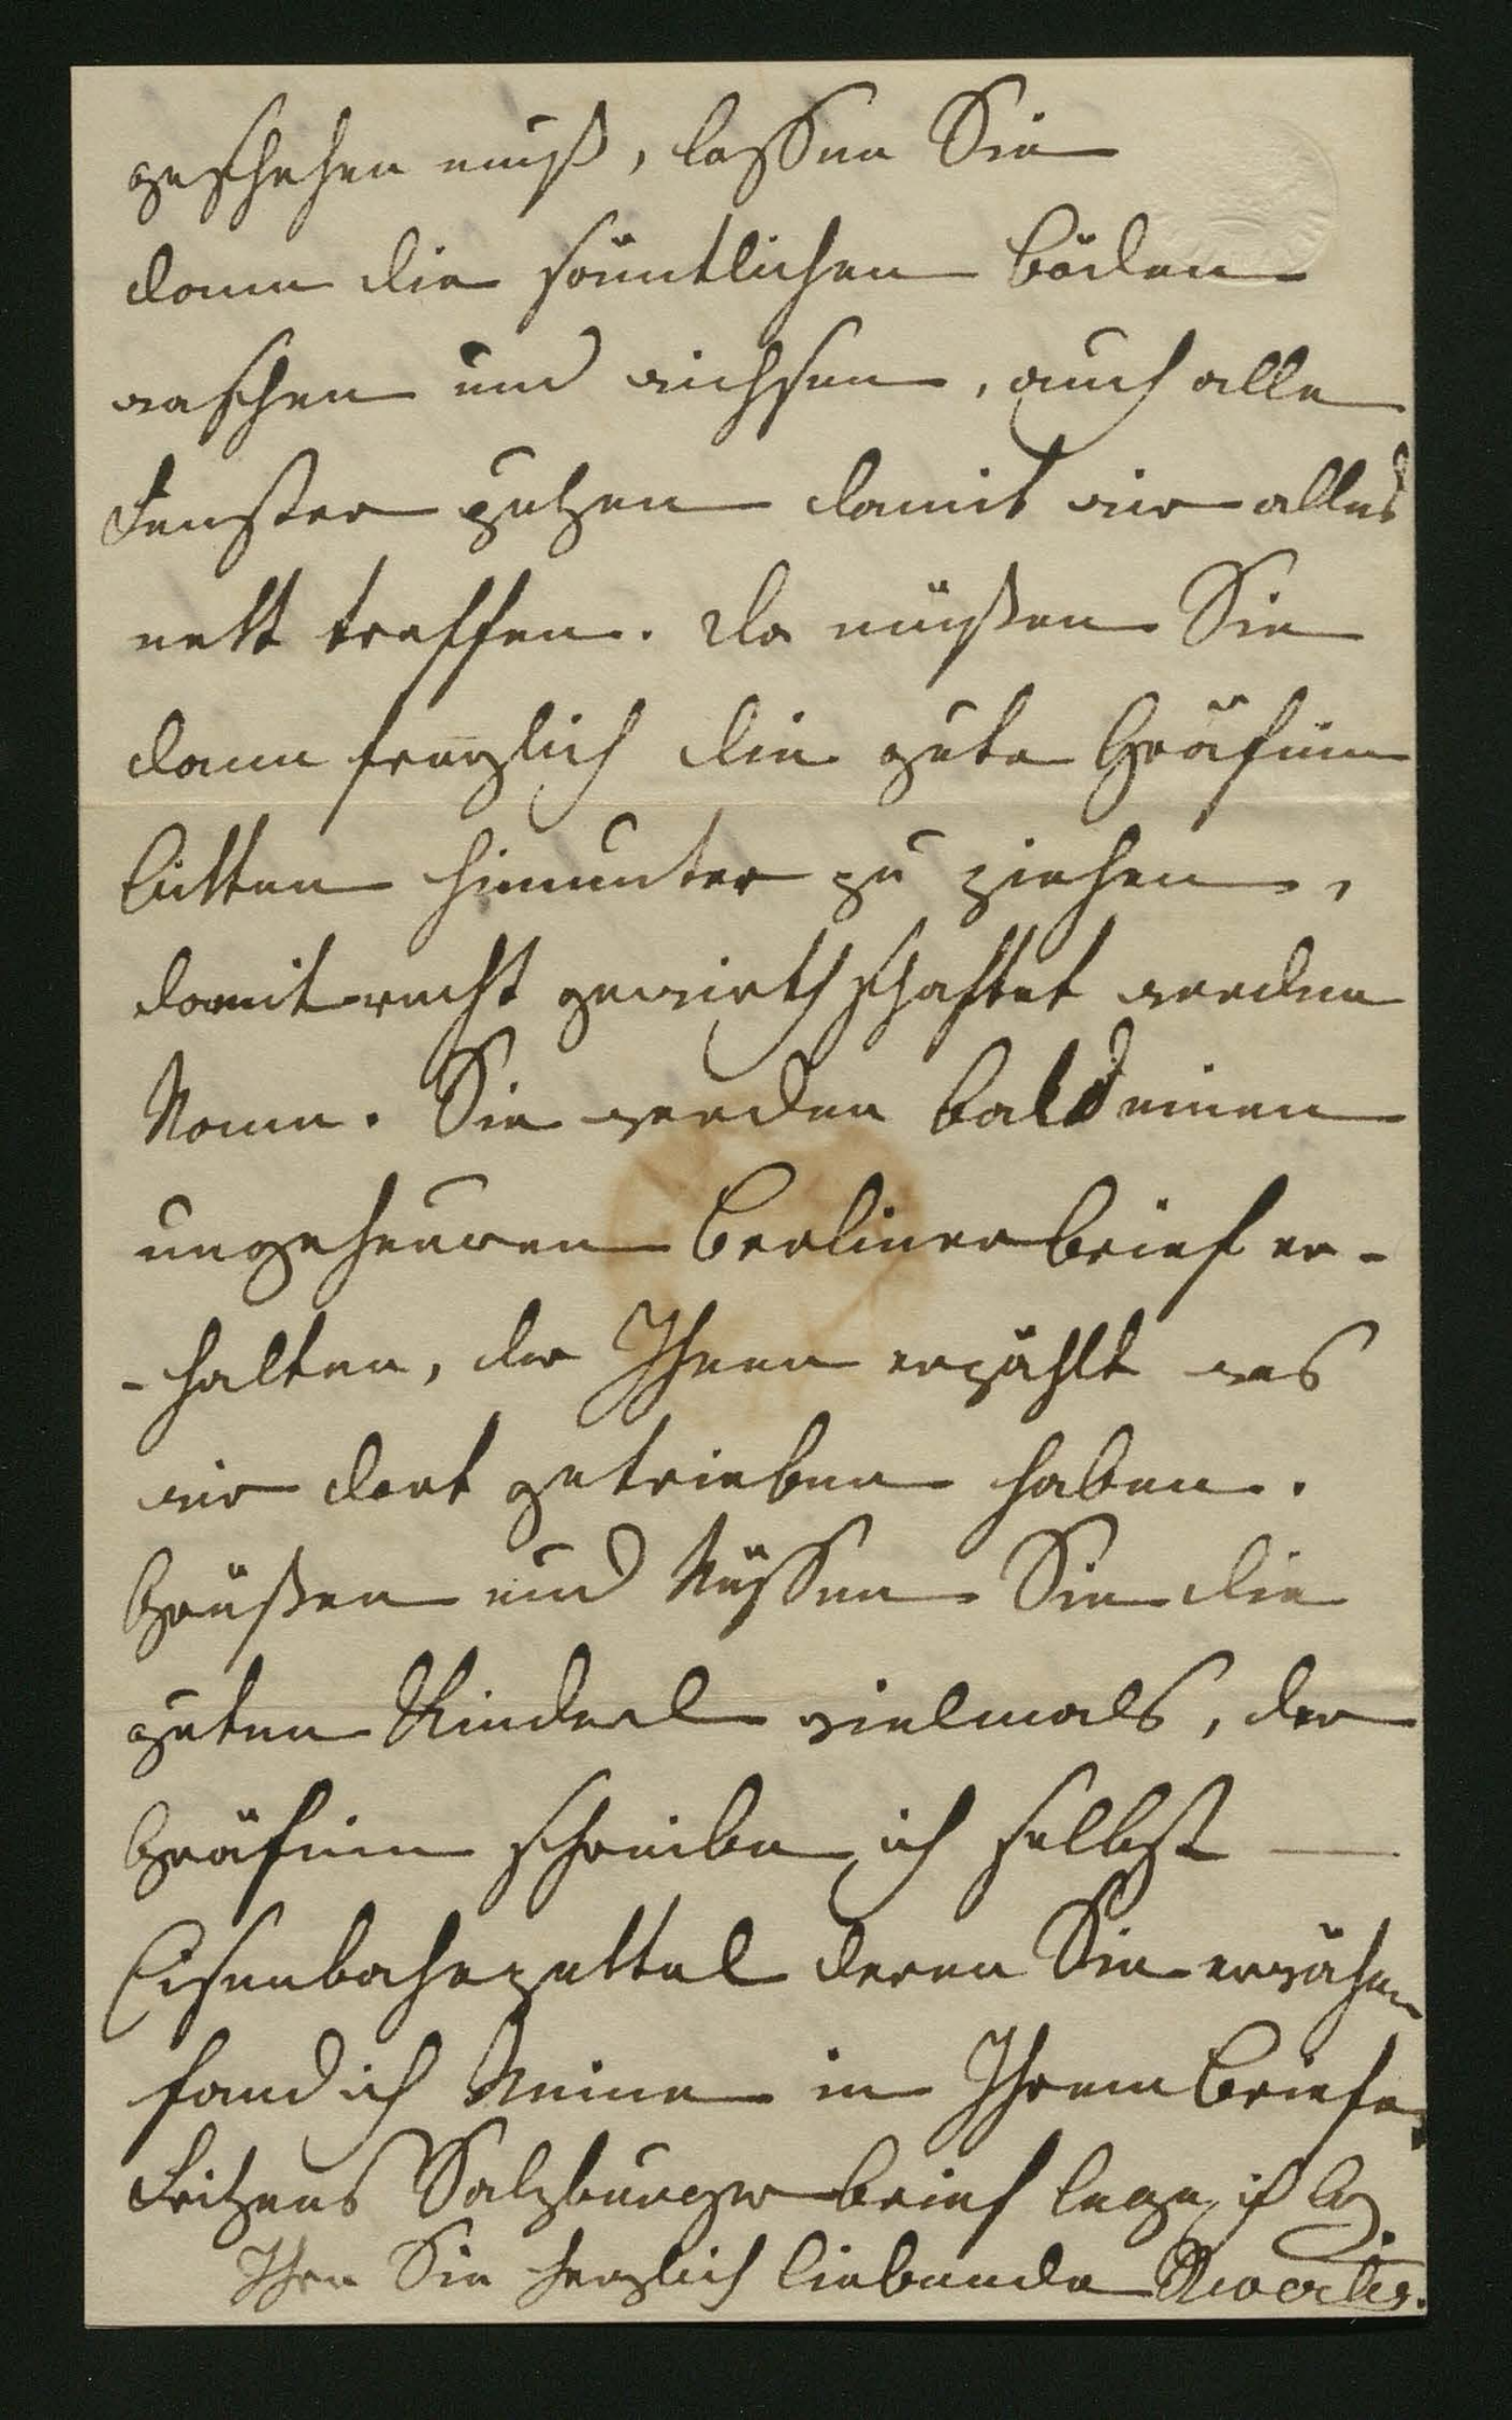 geschehen muß, lassen Sie
dann die sämtlichen Böden
waschen und wichsen, auch alle
Fenster putzen damit wir alles
nett treffen. Da müßen Sie
dann freylich die gute Gräfinn
bitten hinunter zu ziehen,
damit recht gewirthschaftet werden
kann. Sie werden bald einen
ungeheuren Berlinerbrief er-
-halten, der Ihnen erzählt was
wir dort getrieben haben.
Grüßen und küssen Sie die
guten Kinderl vielmals, der
Gräfinn schreibe ich selbst —
Eisenbahnzettel deren Sie erwähnen
fand ich keine in Ihrem Briefe,
Fritzens Salzburgerbrief lege ich bey.
Ihre Sie herzlich liebende